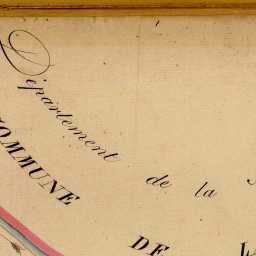 Département de la
COMMUNE
DE